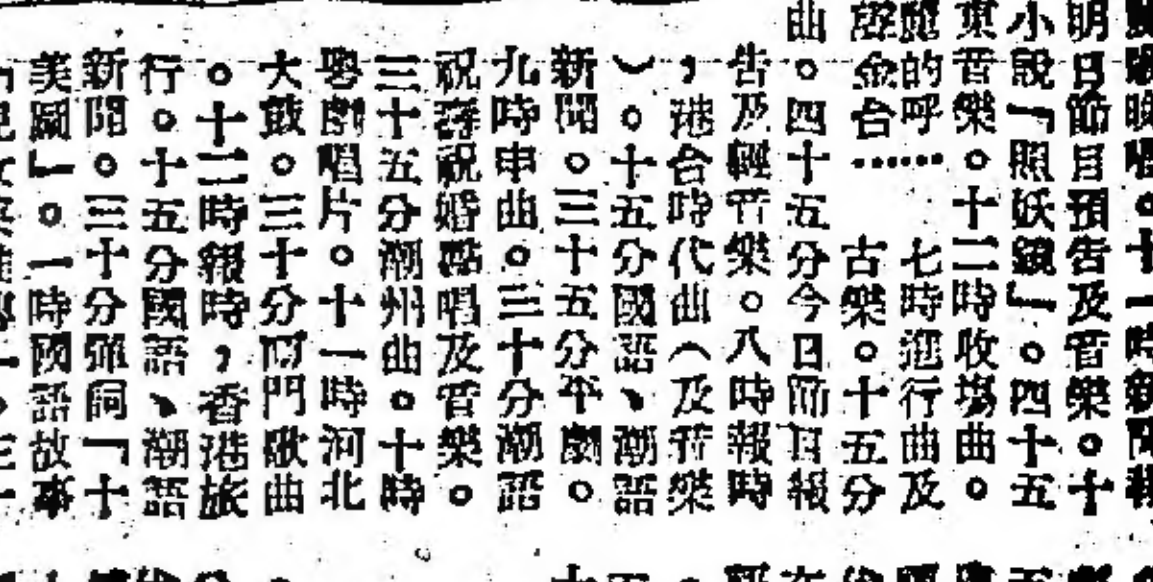 唱。十一時新聞報
明日節目預告及音樂。十
小說「照妖鏡」。四十五
東音樂。十二時收場曲。
的呼…… 七時進行曲及
金台…… 古樂。十五分
曲。四十五分今日節目報
告及輕音樂。八時報時
，港台時代曲（及音樂
）。十五分國語、潮語
新聞。三十五分平劇。
九時申曲。三十分潮語
祝壽祝婚點唱及音樂。
三十五分潮州曲。十時
粵劇唱片。十一時河北
大鼓。三十分廈門歌曲
。十二時報時，香港旅
行。十五分國語、潮語
新聞。三十分彈詞「十
美圖」。一時國語故事